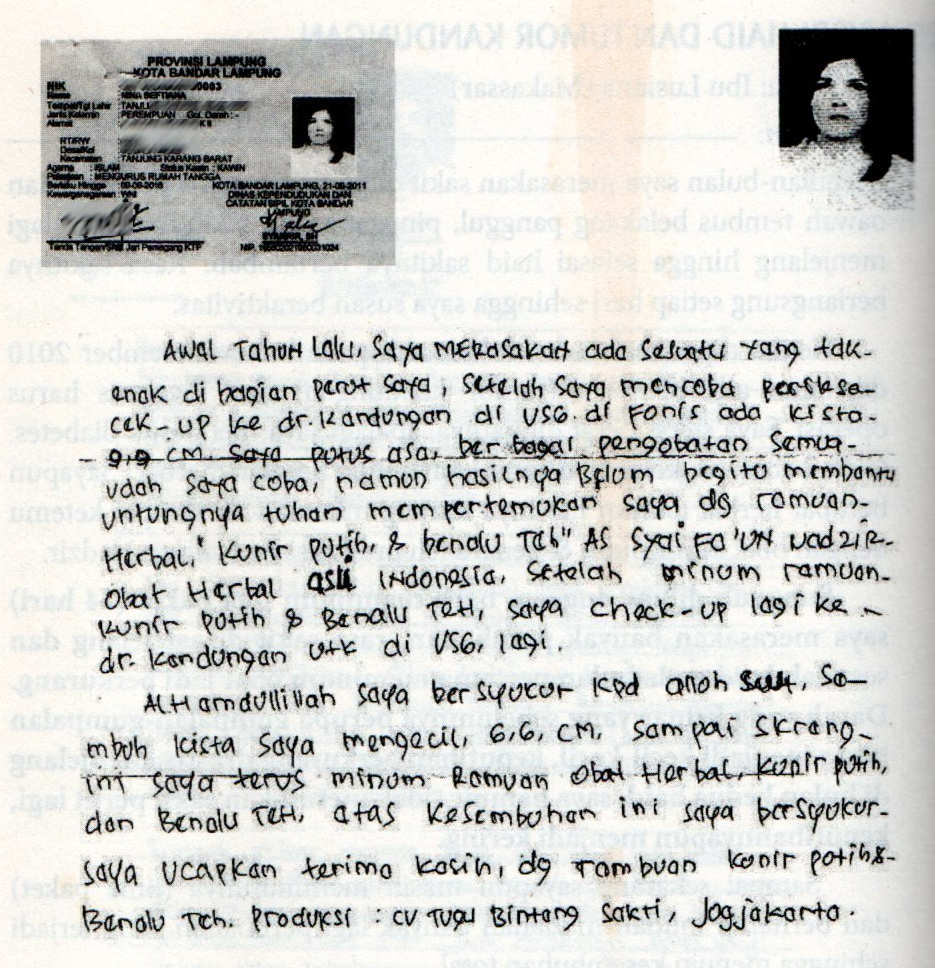 PROVINSI LAMPUNG
KOTA BANDAR LAMPUNG
NIK
0003
Nama
Tempat/Tgl Lahir
Jenis Kelamin : PEREMPUAN Gol. Darah : -
Alamat
RT/RW
Desa/Kel
Kecamatan : TANJUNG KARANG BARAT
Agama : ISLAM Status Kawin : KAWIN
Pekerjaan : MENGURUS RUMAH TANGGA
Berlaku Hingga
Kewarganegaraan : WNI
KOTA BANDAR LAMPUNG, 21-09-2011
DINAS KEPENDUDUKAN DAN
CATATAN SIPIL KOTA BANDAR
LAMPUNG
Tanda Tangan/Sidik Jari Pemegang KTP
NIP.
Awal Tahun Lalu, Saya merasakan ada sesuatu yang tdk
enak di bagian perut saya, setelah saya mencoba periksa
cek-up ke dr. kandungan di USG. di Fonis ada kista
9,9 cm. saya putus asa, berbagai pengobatan semua
udah saya coba, namun hasilnya Belum begitu membantu
untungnya tuhan mempertemukan saya dg ramuan
Herbal, "kunir putih, & benalu Teh" AS SYAIFA'UN Nadzir
Obat Herbal asli Indonesia, setelah minum ramuan
kunir putih & Benalu TeH, saya check-up lagi ke
dr. kandungan utk di USG. lagi
ALHamdullilah saya bersyukur kpd alloh swt, Se-
mbuh kista saya mengecil, 6,6, CM, sampai skrang
ini saya terus minum Ramuan Obat Herbal, kunir putih,
dan Benalu TeH, atas kesembuhan ini saya bersyukur
saya ucapkan terima kasih, dg rambuan kunir potih &
Benalu Teh. Produksi : CV Tugu Bintang Sakti, Jogjakarta.